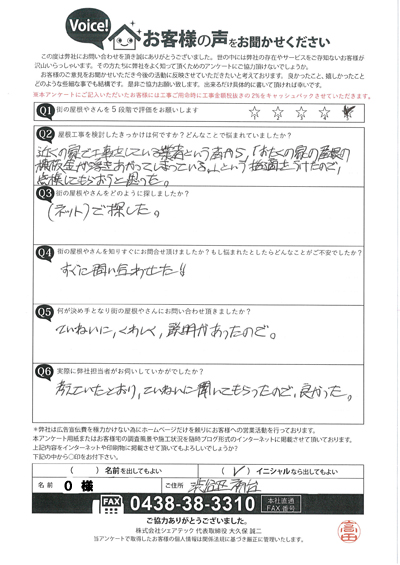 Voice! お客様の声をお聞かせください
この度は弊社にお問い合わせを頂き誠にありがとうございました。世の中には弊社の存在やサービスをご存知ないお客様が
沢山いらっしゃいます。その方たちに弊社をよく知って頂くためのアンケートにご協力頂けないでしょうか。
お客様のご意見をお聞かせいただき今後の活動に反映させていただきたいと考えております。良かったこと、嬉しかったこと
どのような些細な事でも結構です。是非ご協力お願い致します。出来るだけ具体的に書いて頂ければ幸いです。
※本アンケートにご記入いただいたお客様には工事ご用命時に工事金額税抜きの2%をキャッシュバックさせていただきます。
Q1 街の屋根やさんを5段階で評価をお願いします ☆ ☆ ☆ ☆ ☆
Q2 屋根工事を検討したきっかけは何ですか?どんなことで悩まれていましたか?
近くの家で工事をしている業者という者から、「おたくの家の屋根の
板金が浮きあがってしまっている」という指摘をうけたので、
点検してもらおうと思った。
Q3 街の屋根やさんをどのように探しましたか?
(ネット)で探した。
Q4 街の屋根やさんを知りすぐにお問合せ頂けましたか?もし悩まれたとしたらどんなことがご不安でしたか?
すぐに問い合わせた!!
Q5 何が決め手となり街の屋根やさんにお問い合わせ頂きましたか?
ていねいに、くわしく、説明があったので。
Q6 実際に弊社担当者がお伺いしていかがでしたか?
考えていたとおり、ていねいに聞いてもらったので、良かった。
※弊社は広告宣伝費を極力かけない為にホームページだけを頼りにお客様への営業活動を行っております。
本アンケート用紙またはお客様宅の調査風景や施工状況を随時ブログ形式のインターネットに掲載させて頂いております。
上記内容をインターネットや印刷物に掲載させて頂いてもよろしいでしょうか?
下記の中から〇印をお下さい。
( )名前を出してもよい (✓)イニシャルなら出してもよい
名前 O 様 ご住所 渋谷区
FAX 0438-38-3310 本社直通 FAX番号
ご協力ありがとうございました。
株式会社シェアテック 代表取締役 大久保 誠二
当アンケートで取得したお客様の個人情報は関係法規に基づき厳正に管理いたします。